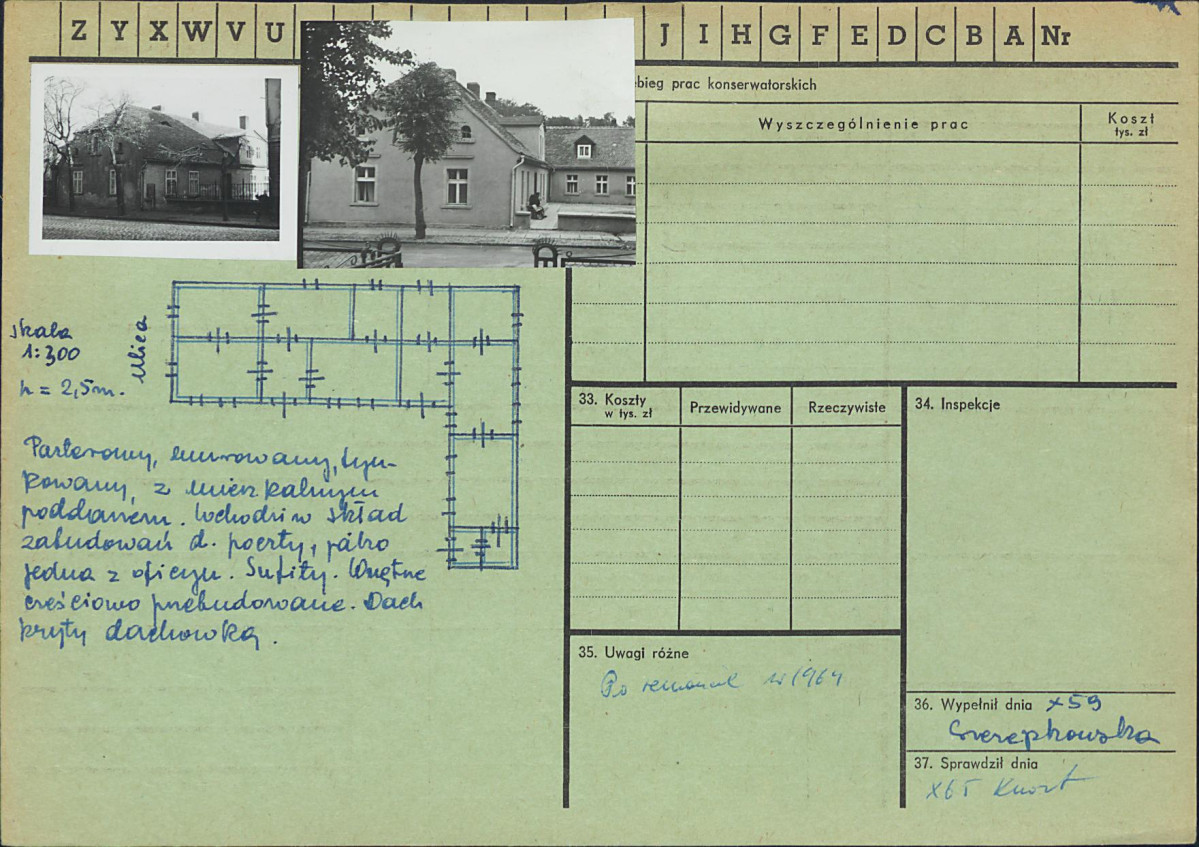 Z Y X W V U J I H G F E D C B A Nr
bieg prac konserwatorskich
Wyszczególnienie prac
Koszt
tys. zł
skala
1:300
h = 2,5 m.
ulica
Parterowy, murowany, tyn-
kowany, z mieszkalnym
poddaszem. Wchodzi w skład
zabudowań d. poczty, jako
jedna z oficyn. Sufity. Wnętrze
częściowo przebudowane. Dach
kryty dachówką.
33. Koszty
w tys. zł
Przewidywane
Rzeczywiste
34. Inspekcje
35. Uwagi różne
Po remoncie w 1964
36. Wypełnił dnia X 59
37. Sprawdził dnia
X 65